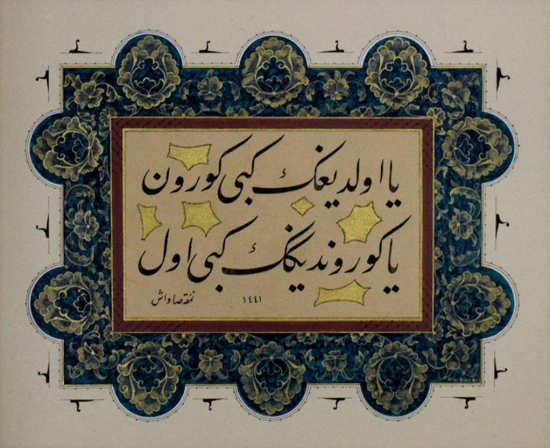 یا اولدیغڭ كبی كورون
یا كوروندیگڭ كبی اول
١٤٤١
نمقه صاواش